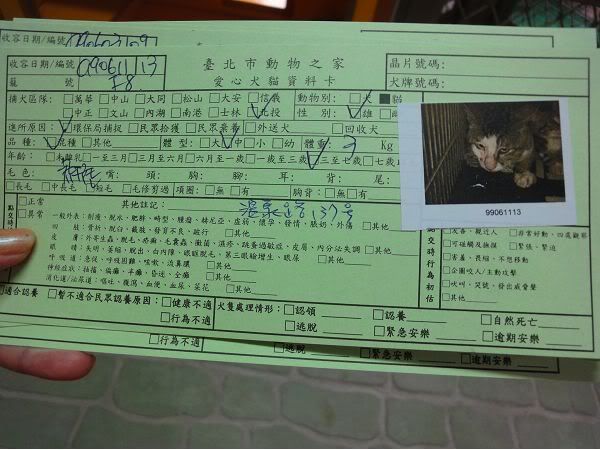 收容日期/編號
臺北市動物之家
愛心犬貓資料卡
收容日期/編號: 99061113
籠號 F8
晶片號碼:
犬牌號碼:
捕犬區隊: □萬華 □中山 □大同 □松山 □大安 □信義
□中正 □文山 □內湖 □南港 □士林 □北投
動物別: □犬 ■貓
性別: □雄 □雌
進所原因: □環保局捕捉 □民眾拾獲 □民眾棄養 □外送犬 □回收犬
品種: □混種 □其他
體型: □大 □中 □小 □幼 體重: 3 Kg
年齡: □未離乳 □一至三月 □三月至六月 □六月至一歲 □一歲至三歲 □三至七歲 □七歲
毛色: 嘴: 頭: 胸: 腳: 耳: 背: 尾:
□長毛 □中長毛 □短毛 □毛修剪過 項圈: □無 □有 胸背: □無 □有
99061113
點交時
□正常
□異常
其他註記: 溫泉路137号
一般外表: 削瘦、脫水、肥胖、畸型、腫瘤、赫尼亞、虛弱、懷孕、發情、脹奶、外傷 □其他
四肢: 骨折、脫臼、截肢、發育不良、跛行 □其他
皮膚: 外寄生蟲、脫毛、疥癬、毛囊蟲、黴菌、濕疹、跳蚤過敏症、皮屑、內分泌失調 □其他
眼睛: 失明、萎縮、脫出、白內障、眼瞼脫毛、第三眼瞼增生、眼屎 □其他
呼吸道: 急促、呼吸困難、咳嗽、流鼻膿 □其他
神經症狀: 抽搐、偏癱、半癱、昏迷、全癱 □其他
消化道/泌尿道: 嘔吐、腹瀉、血便、血尿、菜花 □其他
點交時行為初估
□友善、親近人 □非常好動、四處觀察
□可碰觸及撫摸 □緊張、緊迫
□害羞、畏縮、不想移動
□企圖咬人/主動攻擊
□吠叫、哭號、發出威脅聲
□其他
□適合認養 □暫不適合民眾認養原因: □健康不適
□行為不適
犬隻處理情形: □認領 □認養 □自然死亡
□逃脫 □緊急安樂 □逾期安樂
□行為不適 □逃脫 □緊急安樂 □逾期安樂